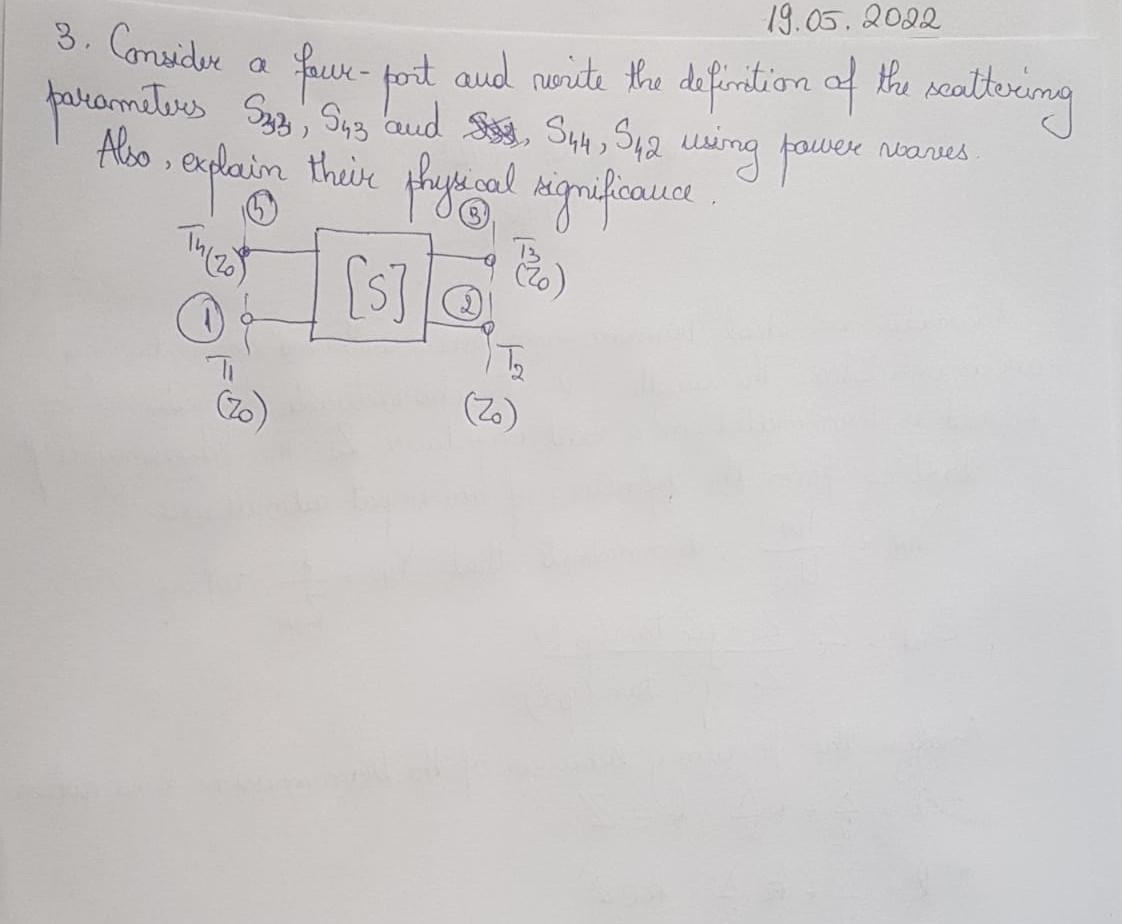 19.05.2022
3. Consider a four-port and write the definition of the scattering
parameters S33, S43 and , S44, S42 using power waves.
Also, explain their physical significance.
④ ③
T4 (Z0) [S] T3 (Z0)
① ②
T1 T2
(Z0) (Z0)